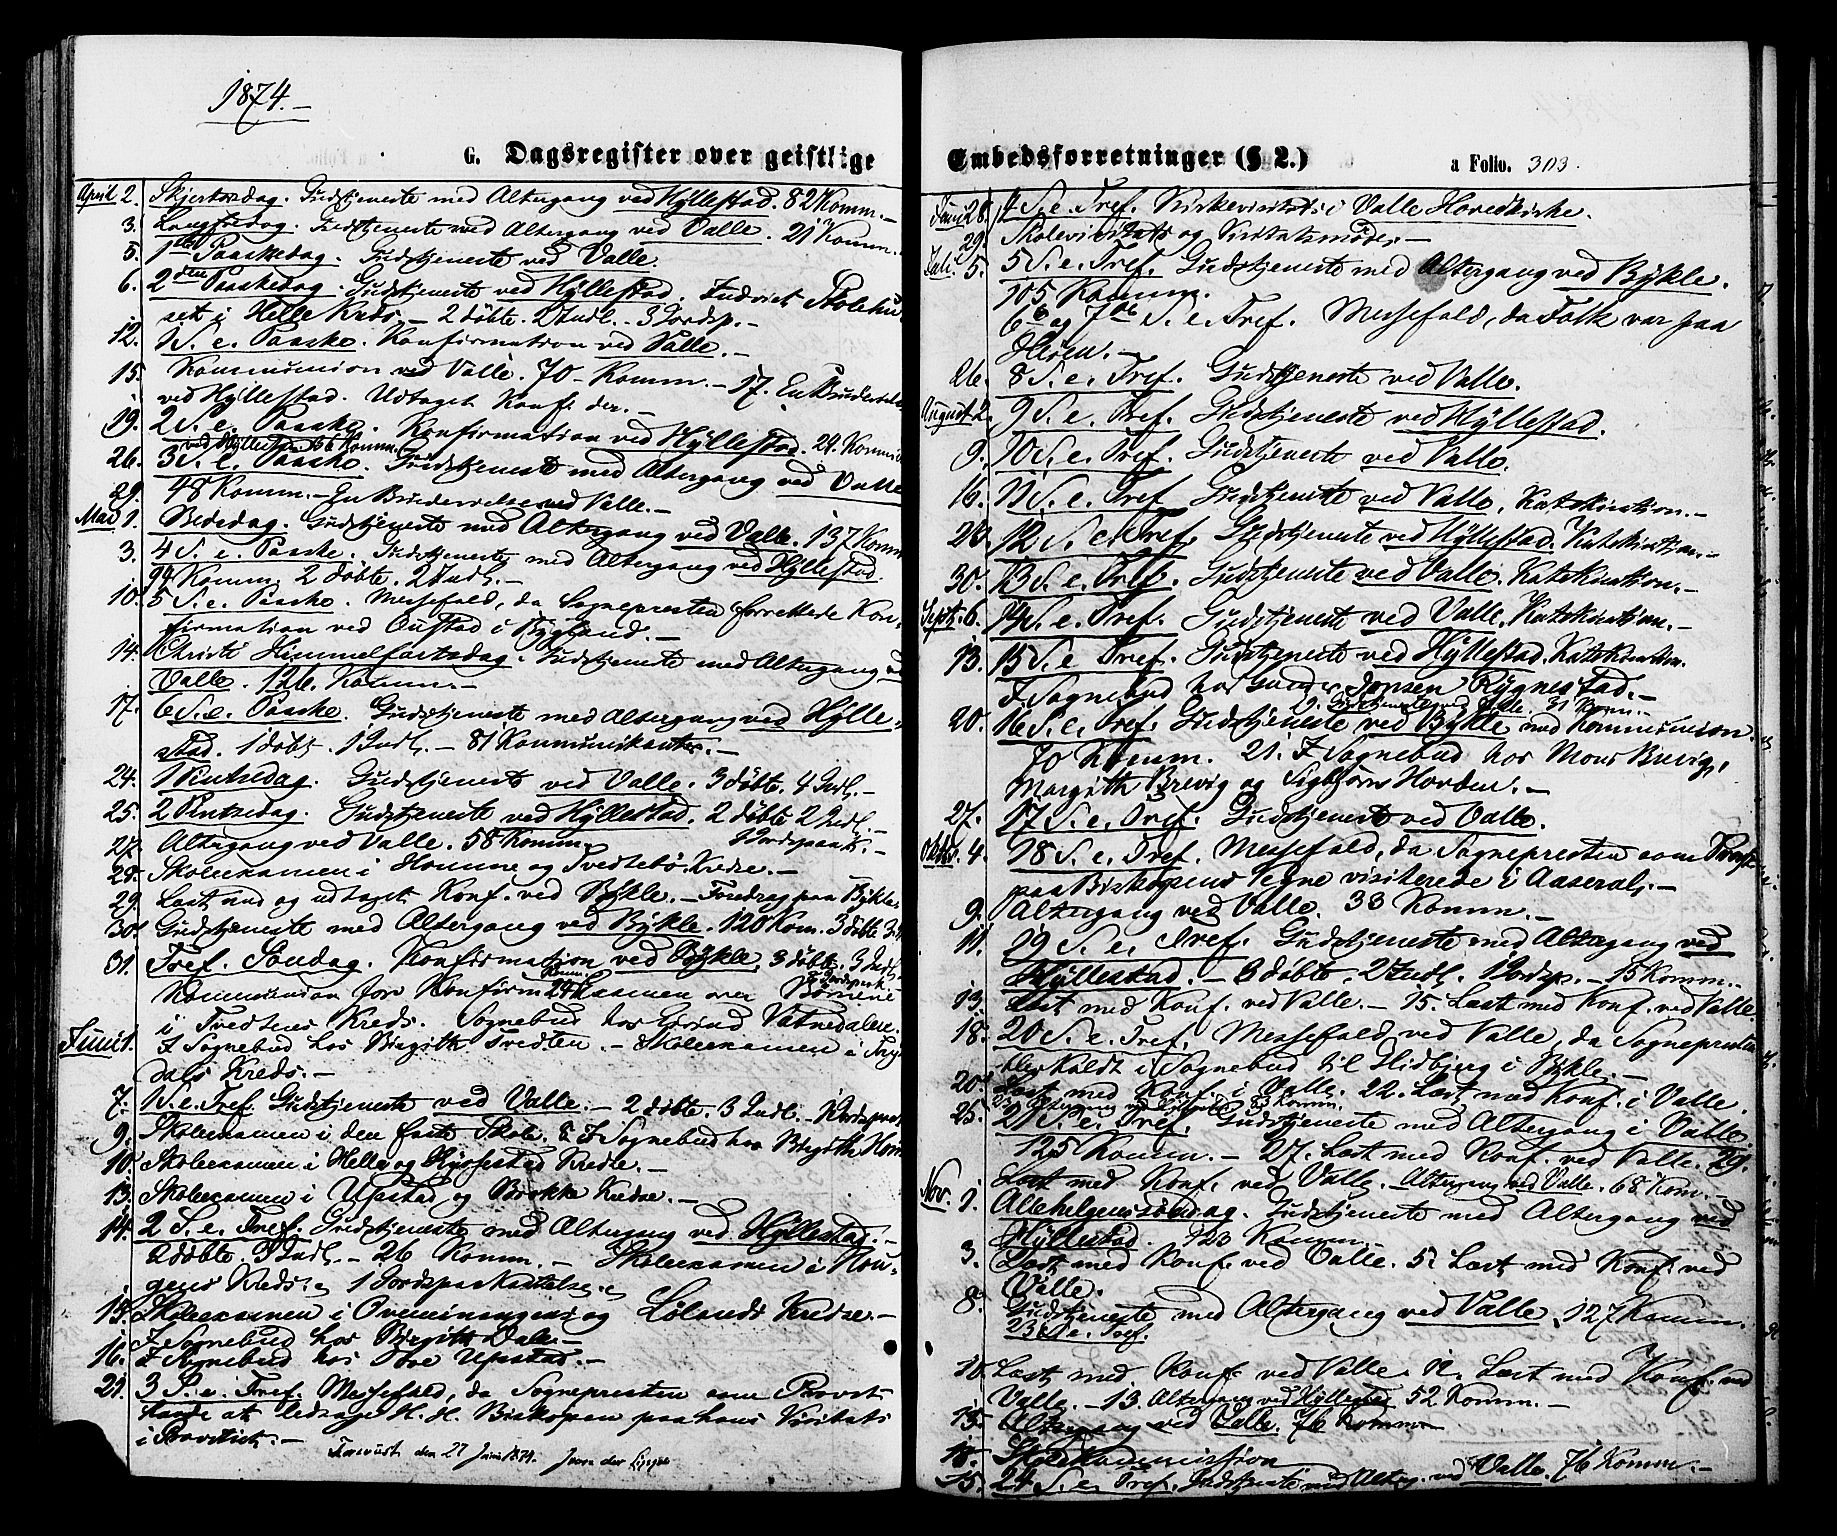 1874.-
G. Dagsregister over geistlige
April 2. Skjertorsdag. Gudstjeneste med Altergang ved Hyllestad. 82 Komm.-
3. Langfredag. Gudstjeneste med Altergang ved Valle. 21 Komm.
5. 1ste Paaskedag. Gudstjeneste ved Valle.
6. 2den Paaskedag. Gudstjeneste ved Hyllestad. Indviet Skolehu-
set i Helle Kreds.- 2 døbte. 2 Indl.- 3 Jordsp.-
12. 1 S. e. Paaske. Konfirmation ved Valle.-
15. Kommunion ved Valle. 70 Komm.- 17. En Brudevielse
ved Hyllestad. Udtaget Konf. der.-
19. 2 S. e. Paaske. Konfirmation ved Hyllestad. 24. Kommunion
ved Hyllestad 56 Komm.
26. 3 S. e. Paaske. Gudstjeneste med Altergang ved Valle
29. 48 Komm.- En Brudevielse ved Valle.-
Mai 1. Bededag. Gudstjeneste med Altergang ved Valle. 137 Komm
3. 4 S. e. Paaske. Gudstjeneste med Altergang ved Hyllestad.
94 Komm. 2 døbte. 2 Indl.-
10. 5 S. e. Paaske. Messefald, da Sognepresten forrettede Kon-
firmation ved Oustad i Bygland.-
14. Christi Himmelfartsdag. Gudstjeneste med Altergang ved
Valle. 126 Komm.-
17. 6 S. e. Paaske. Gudstjeneste med Altergang ved Hylle-
stad. 1 døbt. 1 Indl.- 81 Kommunikanter.-
24. 1 Pintsedag. Gudstjeneste ved Valle. 3 døbte. 4 Indl.-
25. 2 Pintsedag. Gudstjeneste ved Hyllestad. 2 døbte 2 Indl.-
27. Altergang ved Valle. 58 Komm. 1 Jordspaak.-
28. Skoleexamen i Homme og Tvedtebø Kredse.-
29. Læst med og udtaget Konf. ved Bykle.- Foredrag paa Bykle.
30. Gudstjeneste med Altergang ved Bykle. 120 Kom. 3 døbte. 3 Indl
31. Tref. Søndag. Konfirmation ved Bykle. 3 døbte. 3 Indl.
Kommunion for Konfirm. 24 Komm. Examen over Børnene
i Tvedtenes Kreds. Sognebud hos Eivind Vatnedalen.
Juni 1. I Sognebud hos Birgith Tvedten.- Skoleexamen i
dals Kreds.-
7. 1 S. e. Tref. Gudstjeneste ved Valle.- 2 døbte. 3 Indl.- 1 Jordspaa
9. Skoleexamen i den faste Skole. & I Sognebud hos Birgith Hom
10. Skoleexamen i Helle og Rysstad Kredse.-
13. Skoleexamen i Upstad og Brokke Kredse.-
14. 2 S. e. Tref. Gudstjeneste med Altergang ved Hyllestad.-
2 døbte. 3 Indl.- 26 Komm.- Skoleexamen i Hou-
gens Kreds. 1 Jordspaakastelse.
15. Skoleexamen i og Løland Kredse.-
I Sognebud hos Birgith Dale.-
16. I Sognebud hos Upstad.-
21. 3 S. e. Tref. Messefald, da Sognepresten som Provst
havde at ledsage H. H. Biskopen paa hans Visitats
i Provstiet.-
den 27 Juni 1874.
Embedsforretninger (§ 2.)
a Folio. 303.
Juni 28. 4 S. e. Tref. Kirkevisitats i Valle Hovedkirke.
29. Skolevisitats og Visitatsmøde.-
Juli 5. 5 S. e. Tref. Gudstjeneste med Altergang ved Bykle.
105 Komm.
6te og 7de S. e. Tref. Messefald, da Folk var paa
Heien.-
26. 8 S. e. Tref. Gudstjeneste ved Valle.
August 2. 9 S. e. Tref. Gudstjeneste ved Hyllestad.
9. 10 S. e. Tref. Gudstjeneste ved Valle.
16. 11 S. e. Tref Gudstjeneste ved Valle, Katekisation.-
23. 12 S. e. Tref. Gudstjeneste ved Hyllestad. Katekisation.-
30. 13 S. e. Tref. Gudstjeneste ved Valle. Katekisation.-
Septb. 6. 14 S. e. Tref. Gudstjeneste ved Valle. Katekisation.-
13. 15 S. e Tref. Gudstjeneste ved Hyllestad. Katekisation.
I Sognebud hos Gunder Jonsen Rygnestad.-
20. 16 S. e. Tref. Gudstjeneste ved Bykle med Kommunion.
70 Komm. 21. I Sognebud hos Mons Brevig,
Margith Brevig og Sigbjørn Hovden.-
27. 17 S. e. Tref. Gudstjeneste ved Valle.
Oktbr. 4. 18 S. e. Tref. Messefald, da Sognepresten som Provst
paa Biskopens Vegne visiterede i Aaseral.-
9. Altergang ved Valle. 33 Komm.-
11. 19 S. e. Tref. Gudstjeneste med Altergang ved
Hyllestad.- 3 døbte. 2 Indl. 1 Jordsp.- 15 Komm.
13. Læst med Konf. ved Valle.- 15. Læst med Konf. ved Valle.
18. 20 S. e. Tref. Messefald ved Valle, da Sognepresten
blev kaldt i Sognebud til i Bykle.-
20. Læst med Konf. i Valle. 22. Læst med Konf. i Valle.
25. 21 S. e. Tref. Gudstjeneste med Altergang i Valle.
125 Komm.- 27. Læst med Konf. ved Valle. 29.
Læst med Konf. ved Valle. Altergang ved Valle. 68 Kom.-
Nov. 1. Allehelgensdag. Gudstjeneste med Altergang ved
Hyllestad. 123 Komm.-
3. Læst med Konf. ved Valle. 5. Læst med Konf. ved
Valle.
8. Gudstjeneste med Altergang ved Valle. 127 Komm.
23 S. e. Tref.
10. Læst med Konf. ved Valle. 12. Læst med Konf. ved
Valle.- 13. Altergang ved Hyllestad 52 Komm.-
15. Altergang ved Valle. 76 Komm.-
18. Skolekommission
15. 24 S. e. Tref. Gudstjeneste med Alterg. ved Valle. 76 Komm.-